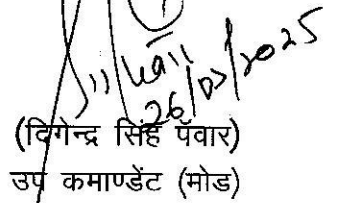 26/05/2025
(दिगेन्द्र सिंह पंवार)
उप कमाण्डेंट (मोड)